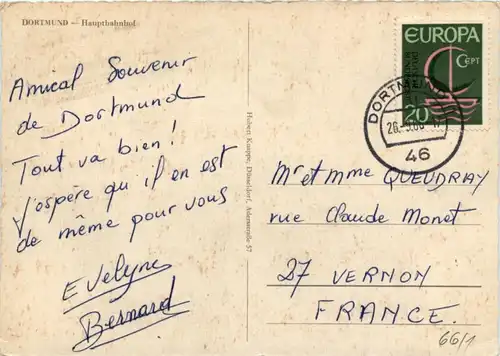 DORTMUND — Hauptbahnhof
Amical Souvenir
de Dortmund
Tout va bien!
J'espère qu'il en est
de même pour vous
Evelyne
Bernard
Hubert Knuppe, Düsseldorf,
EUROPA
CEPT
20
DORTMUND
46
Mr et Mme QUEUDRAY
rue Claude Monet
27 VERNON
FRANCE.
66/1